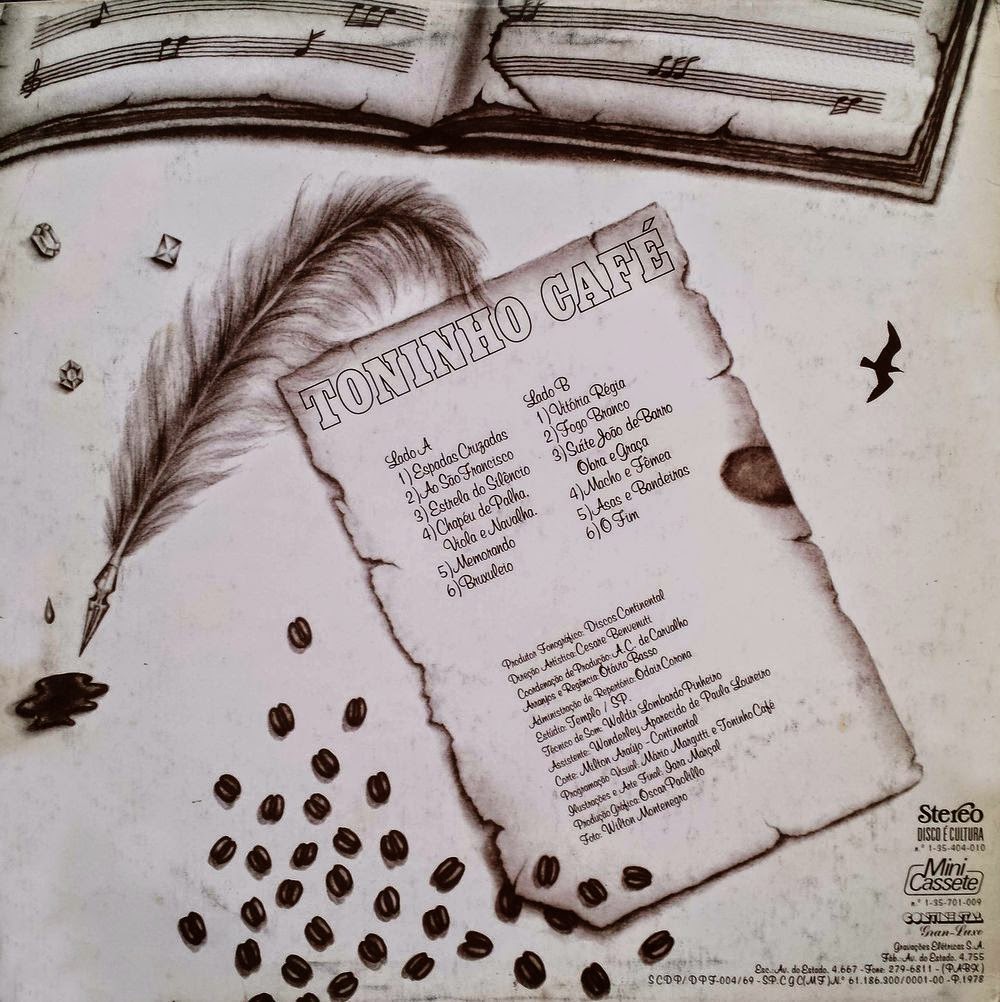 TONINHO CAFÉ
Lado A
1) Espadas Cruzadas
2) Ao São Francisco
3) Estrela do Silêncio
4) Chapéu de Palha,
Viola e Navalha.
5) Memorando
6) Bruxuleio
Lado B
1) Vitória Régia
2) Fogo Branco
3) Suíte João de Barro
Obra e Graça
4) Macho e Fêmea
5) Asas e Bandeiras
6) O Fim
Produtor Fonográfico: Discos Continental
Direção Artística: Cesare Benvenuti
Coordenação de Produção: A.C. de Carvalho
Arranjos e Regência: Otávio Basso
Administração de Repertório: Odair Corona
Estúdio: Templo / SP.
Técnico de Som: Waldir Lombardo Pinheiro
Assistente: Wanderley Aparecido de Paula Loureiro
Corte: Milton Araújo - Continental
Programação Visual: Mário Margutti e Toninho Café
Ilustrações e Arte Final: Iara Marçal
Produção Gráfica: Oscar Paolillo
Foto: Wilton Montenegro
Stereo
DISCO É CULTURA
n.º 1-35-404-010
Mini
Cassete
n.º 1-35-701-009
CONTINENTAL
Gran-Luxo
Gravações Elétricas S.A.
Fáb.: Av. do Estado, 4.755
Esc.: Av. do Estado, 4.667 - Fone: 279-6811 - (PABX)
SCDP/DPF-004/69 - SP. CGC(MF) N.º 61.186.300/0001-00 - P.1978